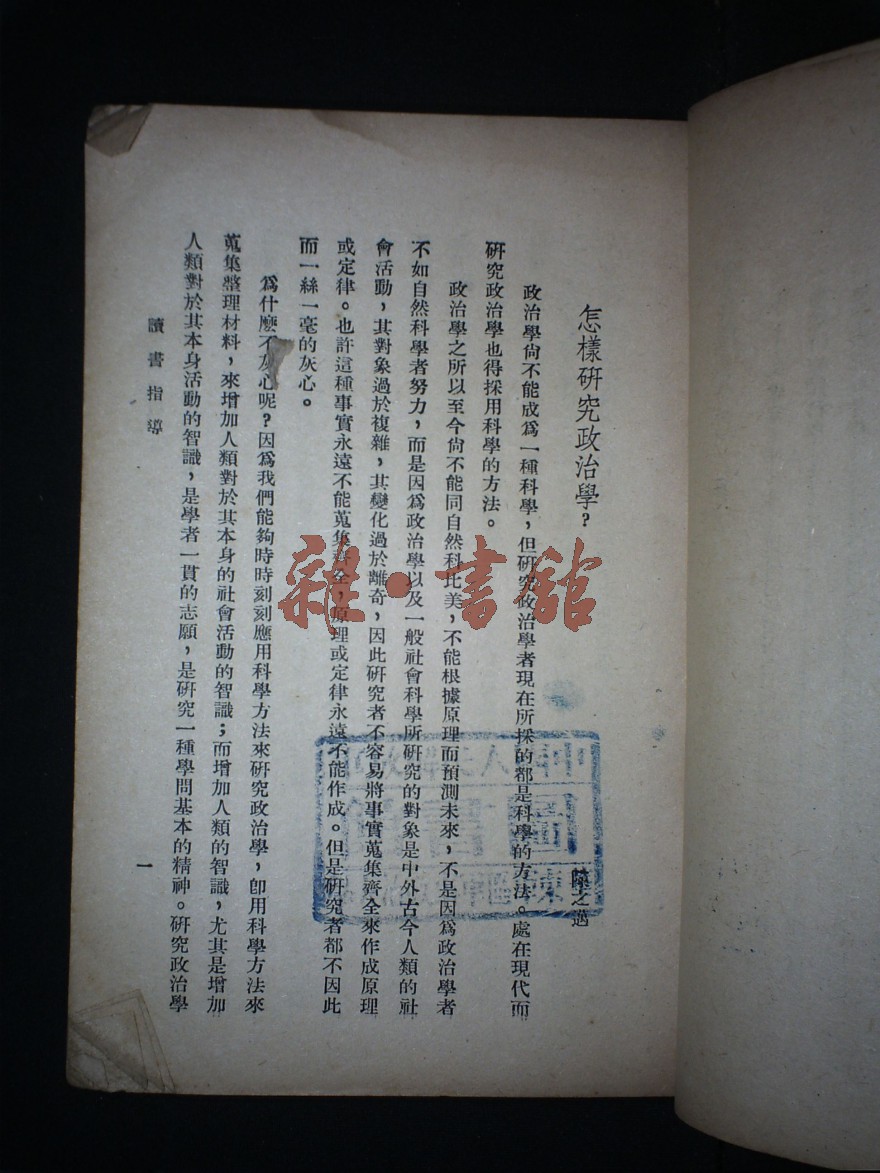 怎樣硏究政治學?
陳之邁
政治學尙不能成爲一種科學,但硏究政治學者現在所採的都是科學的方法。處在現代而
硏究政治學也得採用科學的方法。
政治學之所以至今尙不能同自然科比美,不能根據原理而預測未來,不是因爲政治學者
不如自然科學者努力,而是因爲政治學以及一般社會科學所硏究的對象是中外古今人類的社
會活動,其對象過於複雜,其變化過於離奇,因此硏究者不容易將事實蒐集齊全來作成原理
或定律。也許這種事實永遠不能蒐集齊全,原理或定律永遠不能作成。但是硏究者都不因此
而一絲一毫的灰心。
爲什麽不灰心呢?因爲我們能夠時時刻刻應用科學方法來硏究政治學,卽用科學方法來
蒐集整理材料,來增加人類對於其本身的社會活動的智識;而增加人類的智識,尤其是增加
人類對於其本身活動的智識,是學者一貫的志願,是硏究一種學問基本的精神。硏究政治學
讀書指導
一
雜·書館
圖書